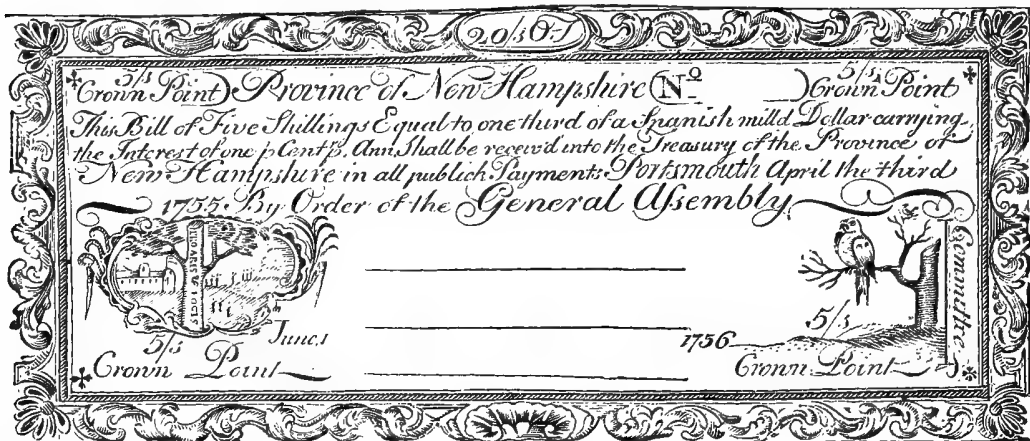 20/s O:T
5/s 5/s
Crown Point) Province of New Hampshire (No )Crown Point
This Bill of Five Shillings Equal to one third of a Spanish mill'd Dollar carrying
the Interest of one p Cent p. Ann, Shall be receiv'd into the Treasury of the Province of
New Hampshire in all publick Payments Portsmouth April the third
1755 By Order of the General Assembly
ARIS & FOCIS
Committee
June 1
5/s
1756
5/s
Crown Point
Crown Point